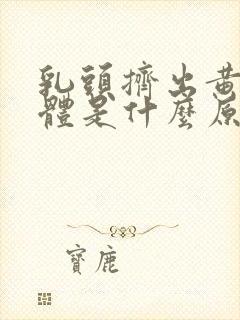 乳頭擠出黃
體是什麼原
寶鹿